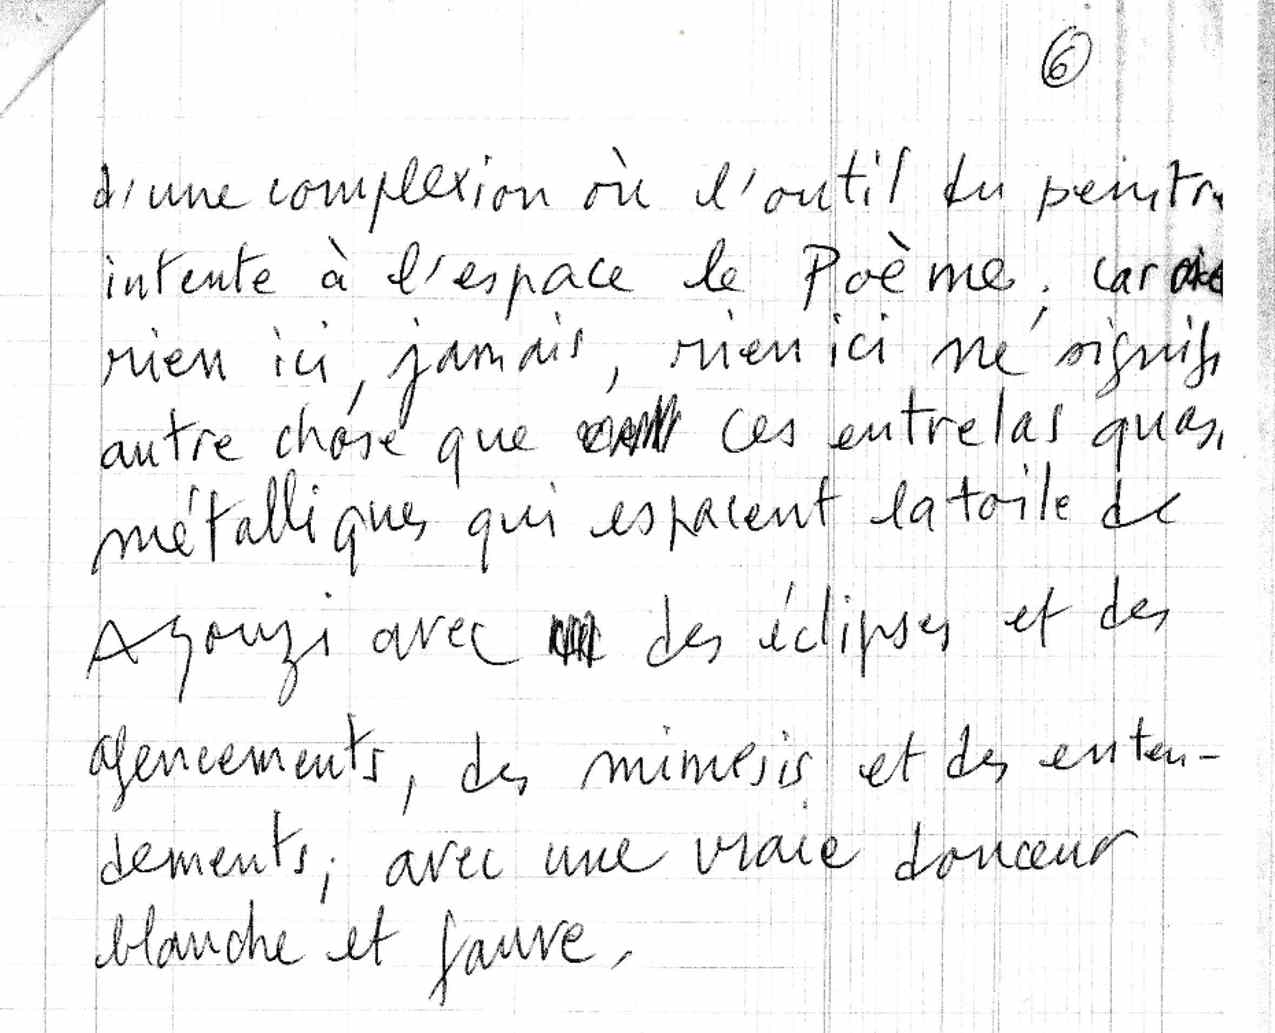 ⑥
d'une complexion où l'outil du peintre
intente à l'espace le Poème; car
rien ici, jamais, rien ici ne signifi
autre chose que ces entrelas quasi
métalliques qui espacent la toile de
Azouzi avec des éclipses et des
agencements, des mimesis et des enten-
dements; avec une vraie douceur
blanche et fauve.